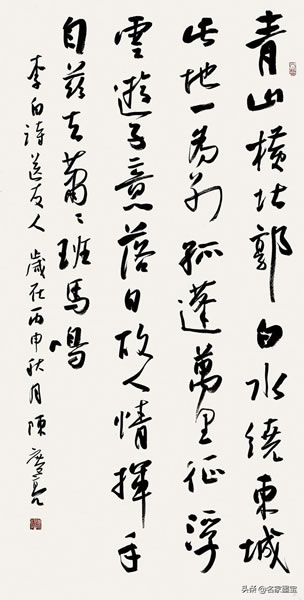 青山橫北郭白水繞東城
此地一為别孤蓬萬里征浮
雲遊子意落日故人情揮手
自兹去蕭々班馬鳴
李白詩送友人 歲在丙申秋月陳
头条 @名家墨宝